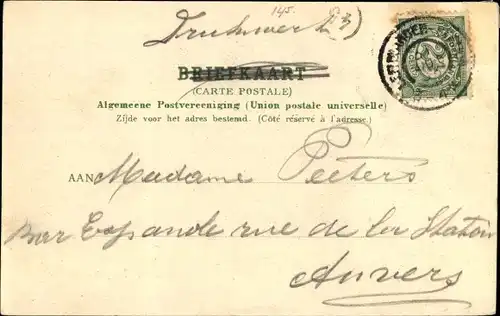 145.
Drukwerk
BRIEFKAART
(CARTE POSTALE)
Algemeene Postvereeniging (Union postale universelle)
Zijde voor het adres bestemd. (Côté réservé à l'adresse.)
AAN Madame Peeters
Bar Espanole rue de la Station
Anvers